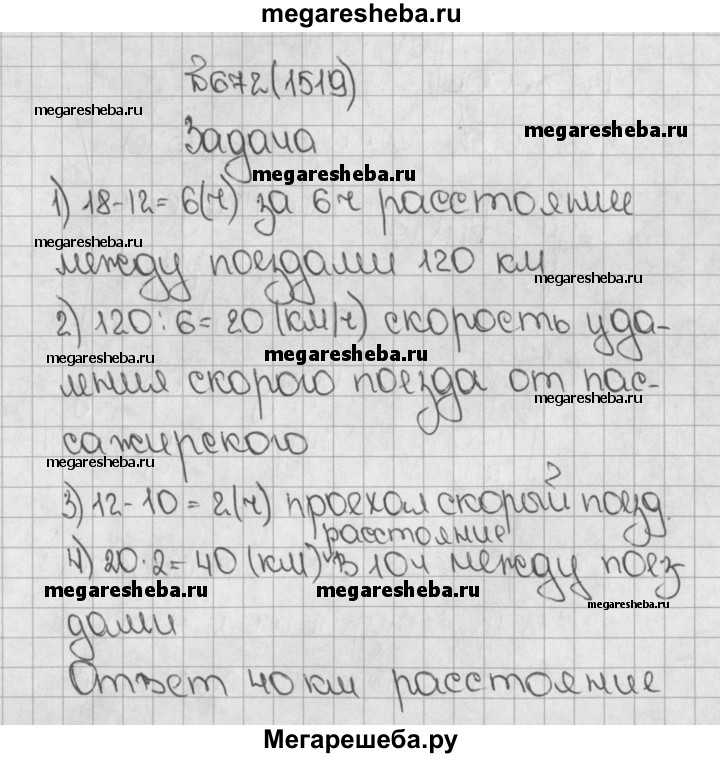 megaresheba.ru
№672(1519)
megaresheba.ru
Задача
megaresheba.ru
megaresheba.ru
1) 18-12=6(ч) за 6ч расстояние
megaresheba.ru
между поездами 120 км
megaresheba.ru
2) 120:6=20(км/ч) скорость уда-
megaresheba.ru
megaresheba.ru
ления скорого поезда от пас-
megaresheba.ru
сажирского
megaresheba.ru
3) 12-10=2(ч) проехал скорый поезд.
расстояние
4) 20·2=40(км) в 10ч между поез
megaresheba.ru
megaresheba.ru
megaresheba.ru
дами
Ответ 40 км расстояние
Мегарешеба.ру